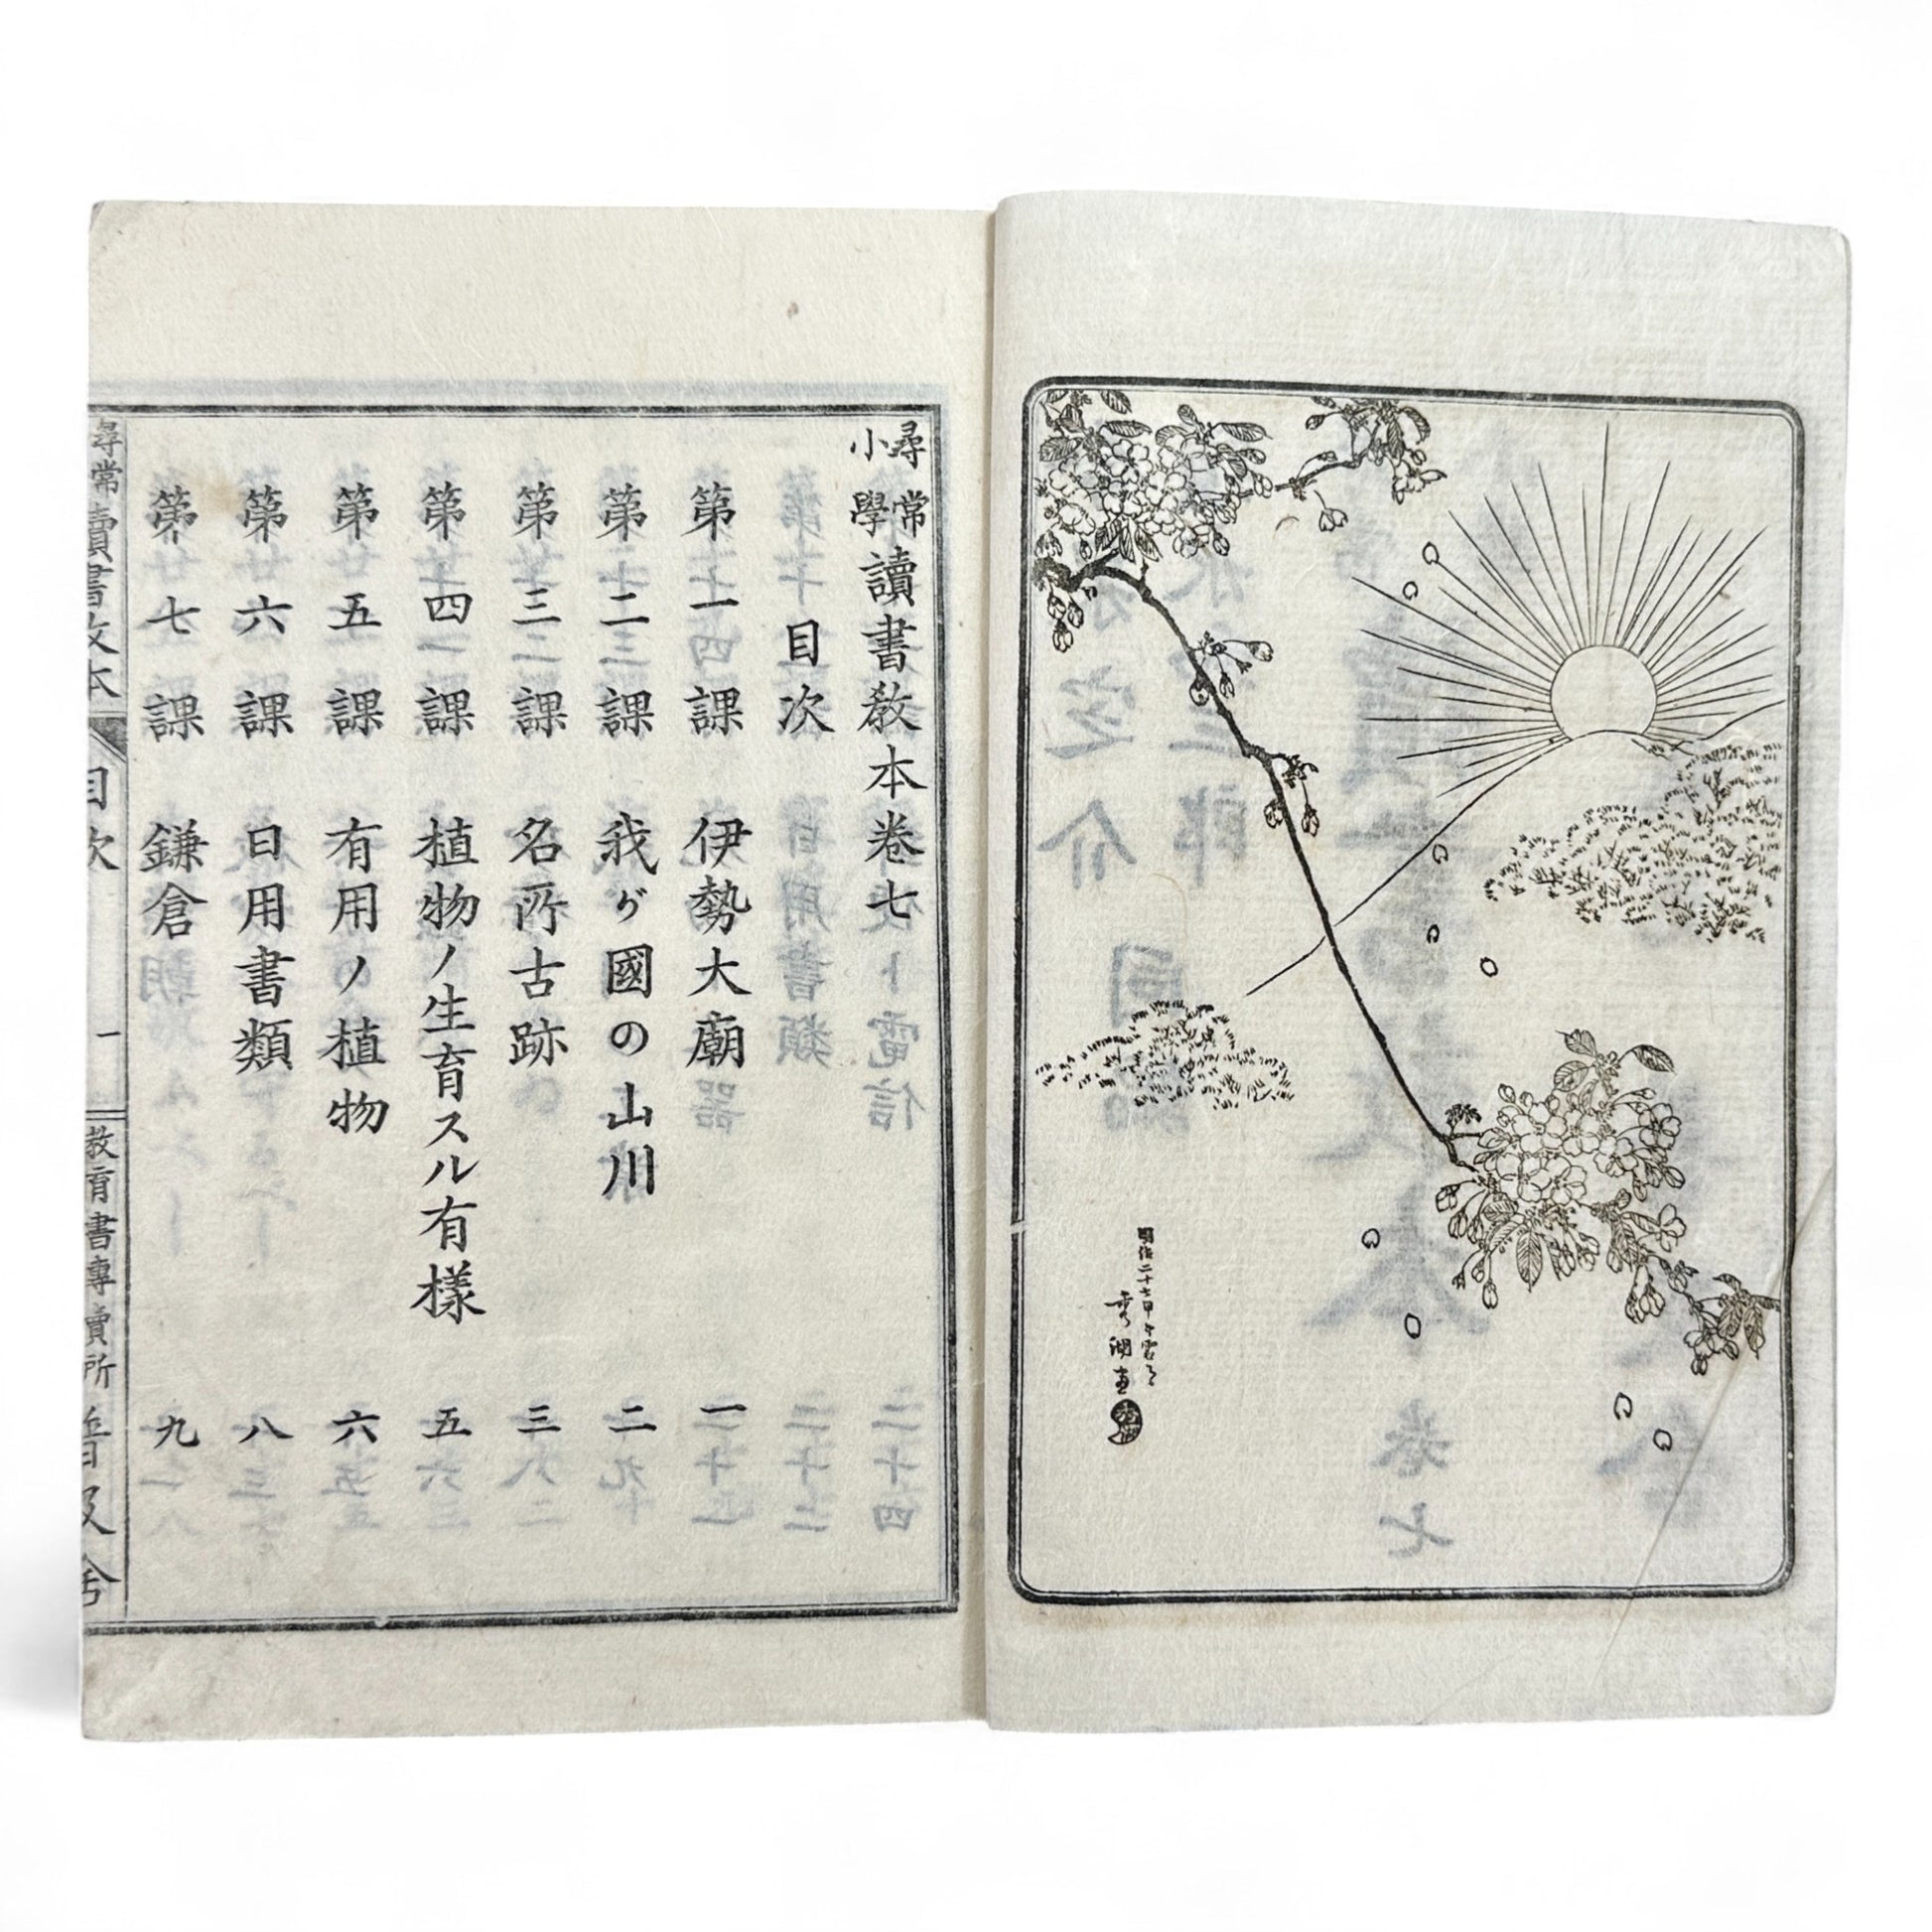 明治二十七甲午
秀湖画
秀湖
尋常小學讀書教本巻七
目次
第一課 伊勢大廟 一
第二課 我ガ國の山川 二
第三課 名所古跡 三
第四課 植物ノ生育スル有樣 五
第五課 有用ノ植物 六
第六課 日用書類 八
第七課 鎌倉 九
尋常讀書教本 目次 一 教育書專賣所 普及舎